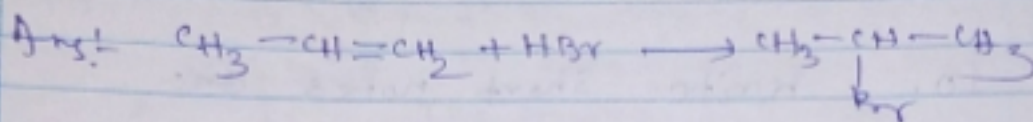 Ans! CH3-CH=CH2 + HBr ⟶ CH3-CH-CH3
|
Br